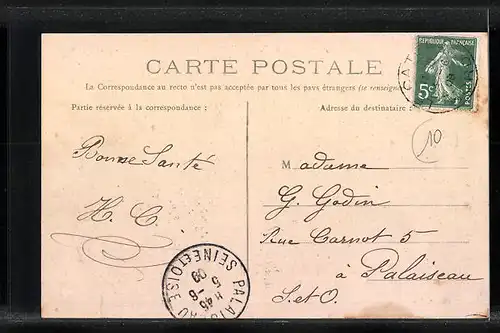 CARTE POSTALE
La Correspondance au recto n'est pas acceptée par tous les pays étrangers (se renseign
Partie réservée à la correspondance :
Adresse du destinataire :
RÉPUBLIQUE FRANÇAISE
5c
POSTES
10
Bonne Santé
H. C.
Madame
G. Godin
Rue Carnot 5
à Palaiseau
S. et O.
PALAISEAU
SEINE ET OISE
5 -6
09